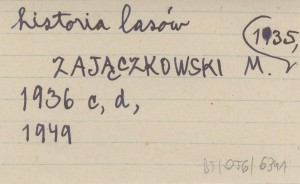 historia lasów
1935,
ZAJĄCZKOWSKI M.
1936 c, d,
1949